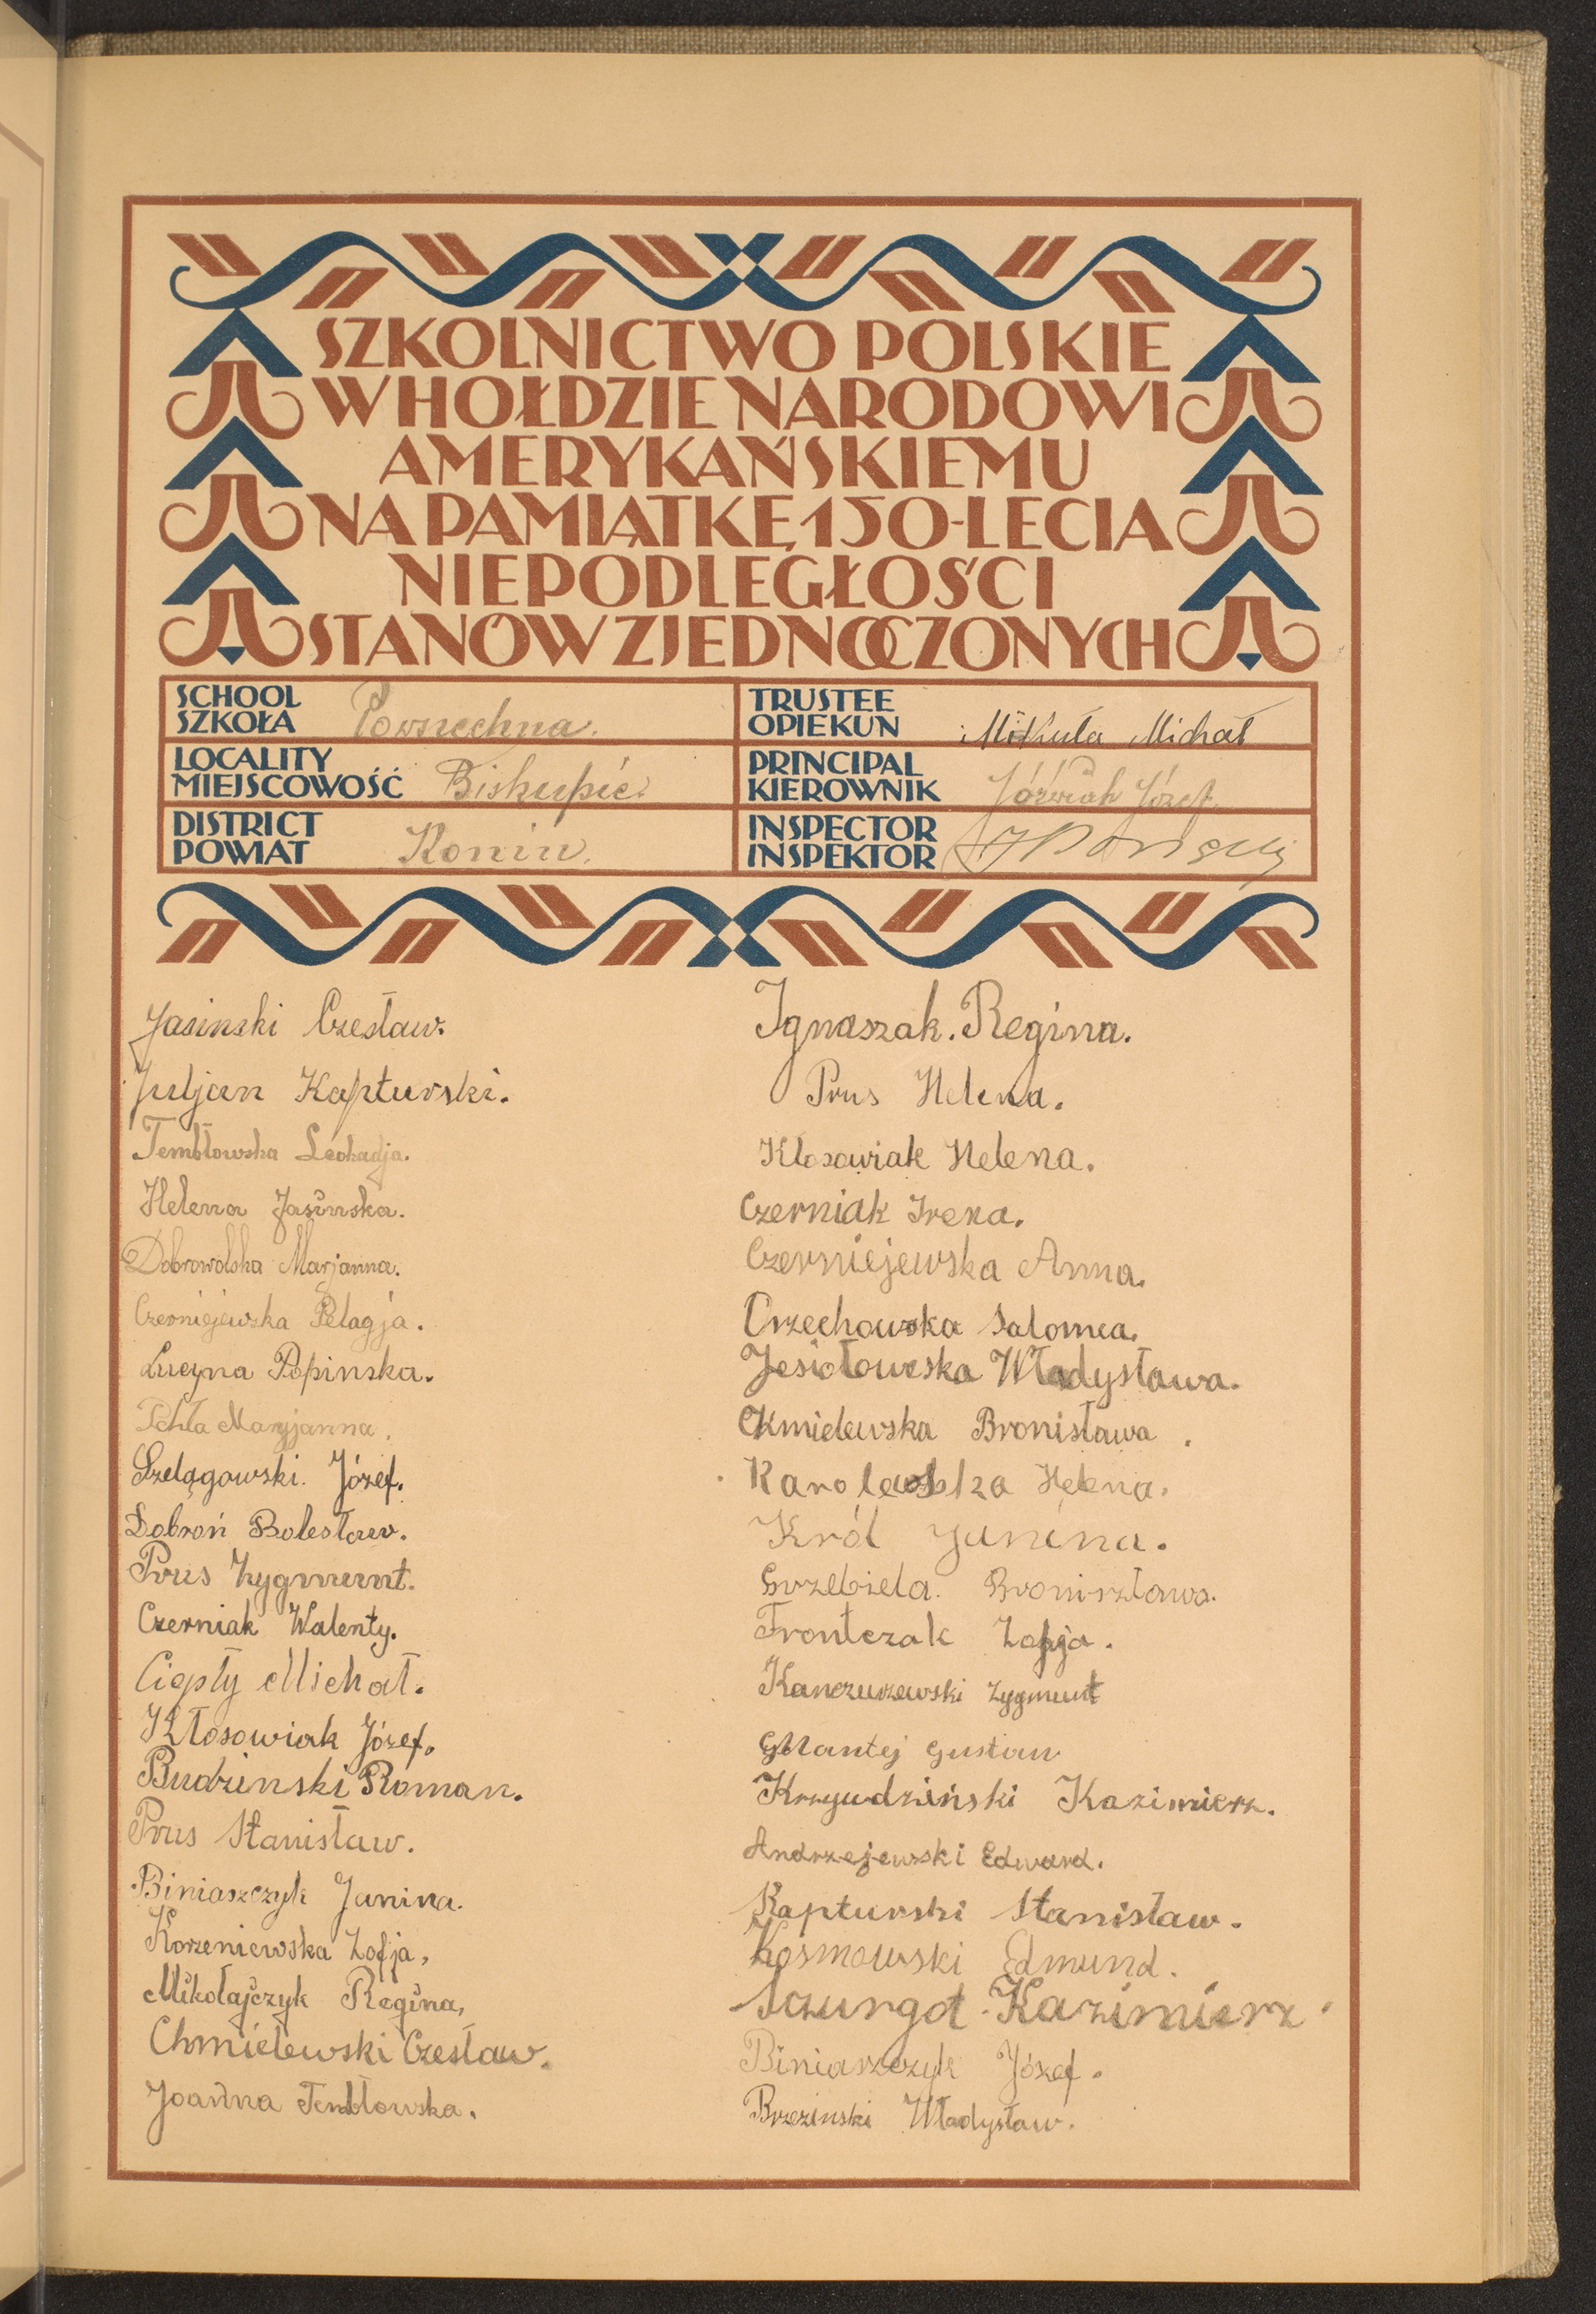 SZKOLNICTWO POLSKIE
W HOŁDZIE NARODOWI
AMERYKAŃSKIEMU
NA PAMIĄTKĘ 150-LECIA
NIEPODLEGŁOŚCI
STANÓW ZJEDNOCZONYCH
SCHOOL
SZKOŁA Powszechna.
TRUSTEE
OPIEKUN Mikuła Michał
LOCALITY
MIEJSCOWOŚĆ Biskupie.
PRINCIPAL
KIEROWNIK Jóźwiak Józef
DISTRICT
POWIAT Konin.
INSPECTOR
INSPEKTOR
Jasinski Czesław.
Juljan Kapturski.
Tembłowska Leokadja.
Helena Jasinska.
Dobrowolska Marjanna.
Czerniejewska Pelagja.
Lucyna Popinska.
Pchła Maryjanna.
Szelągowski. Józef.
Dobroń Bolesław.
Prus Zygmunt.
Czerniak Walenty.
Ciepły Michał.
Kłosowiak Józef.
Budzinski Roman.
Prus Stanisław.
Biniaszczyk Janina.
Korzeniewska Zofja,
Mikołajczyk Regina,
Chmielewski Czesław.
Joanna Tembłowska.
Ignaszak. Regina.
Prus Helena.
Kłosowiak Helena.
Czerniak Irena.
Czerniejewska Anna.
Orzechowska Salomea.
Jesiołowska Władysława.
Chmielewska Bronisława.
Karolewska Helena.
Król Janina.
Grzebiela. Bronisztawa.
Frontczak Zofja.
Kanczurzewski Zygmunt
Mantej Gustaw
Krzyudziński Kazimierz.
Andrzejewski Edward.
Kapturski Stanisław.
Kosmowski Edmund.
Sczurgot Kazimierz.
Biniaszczyk Józef.
Brzezinski Władysław.